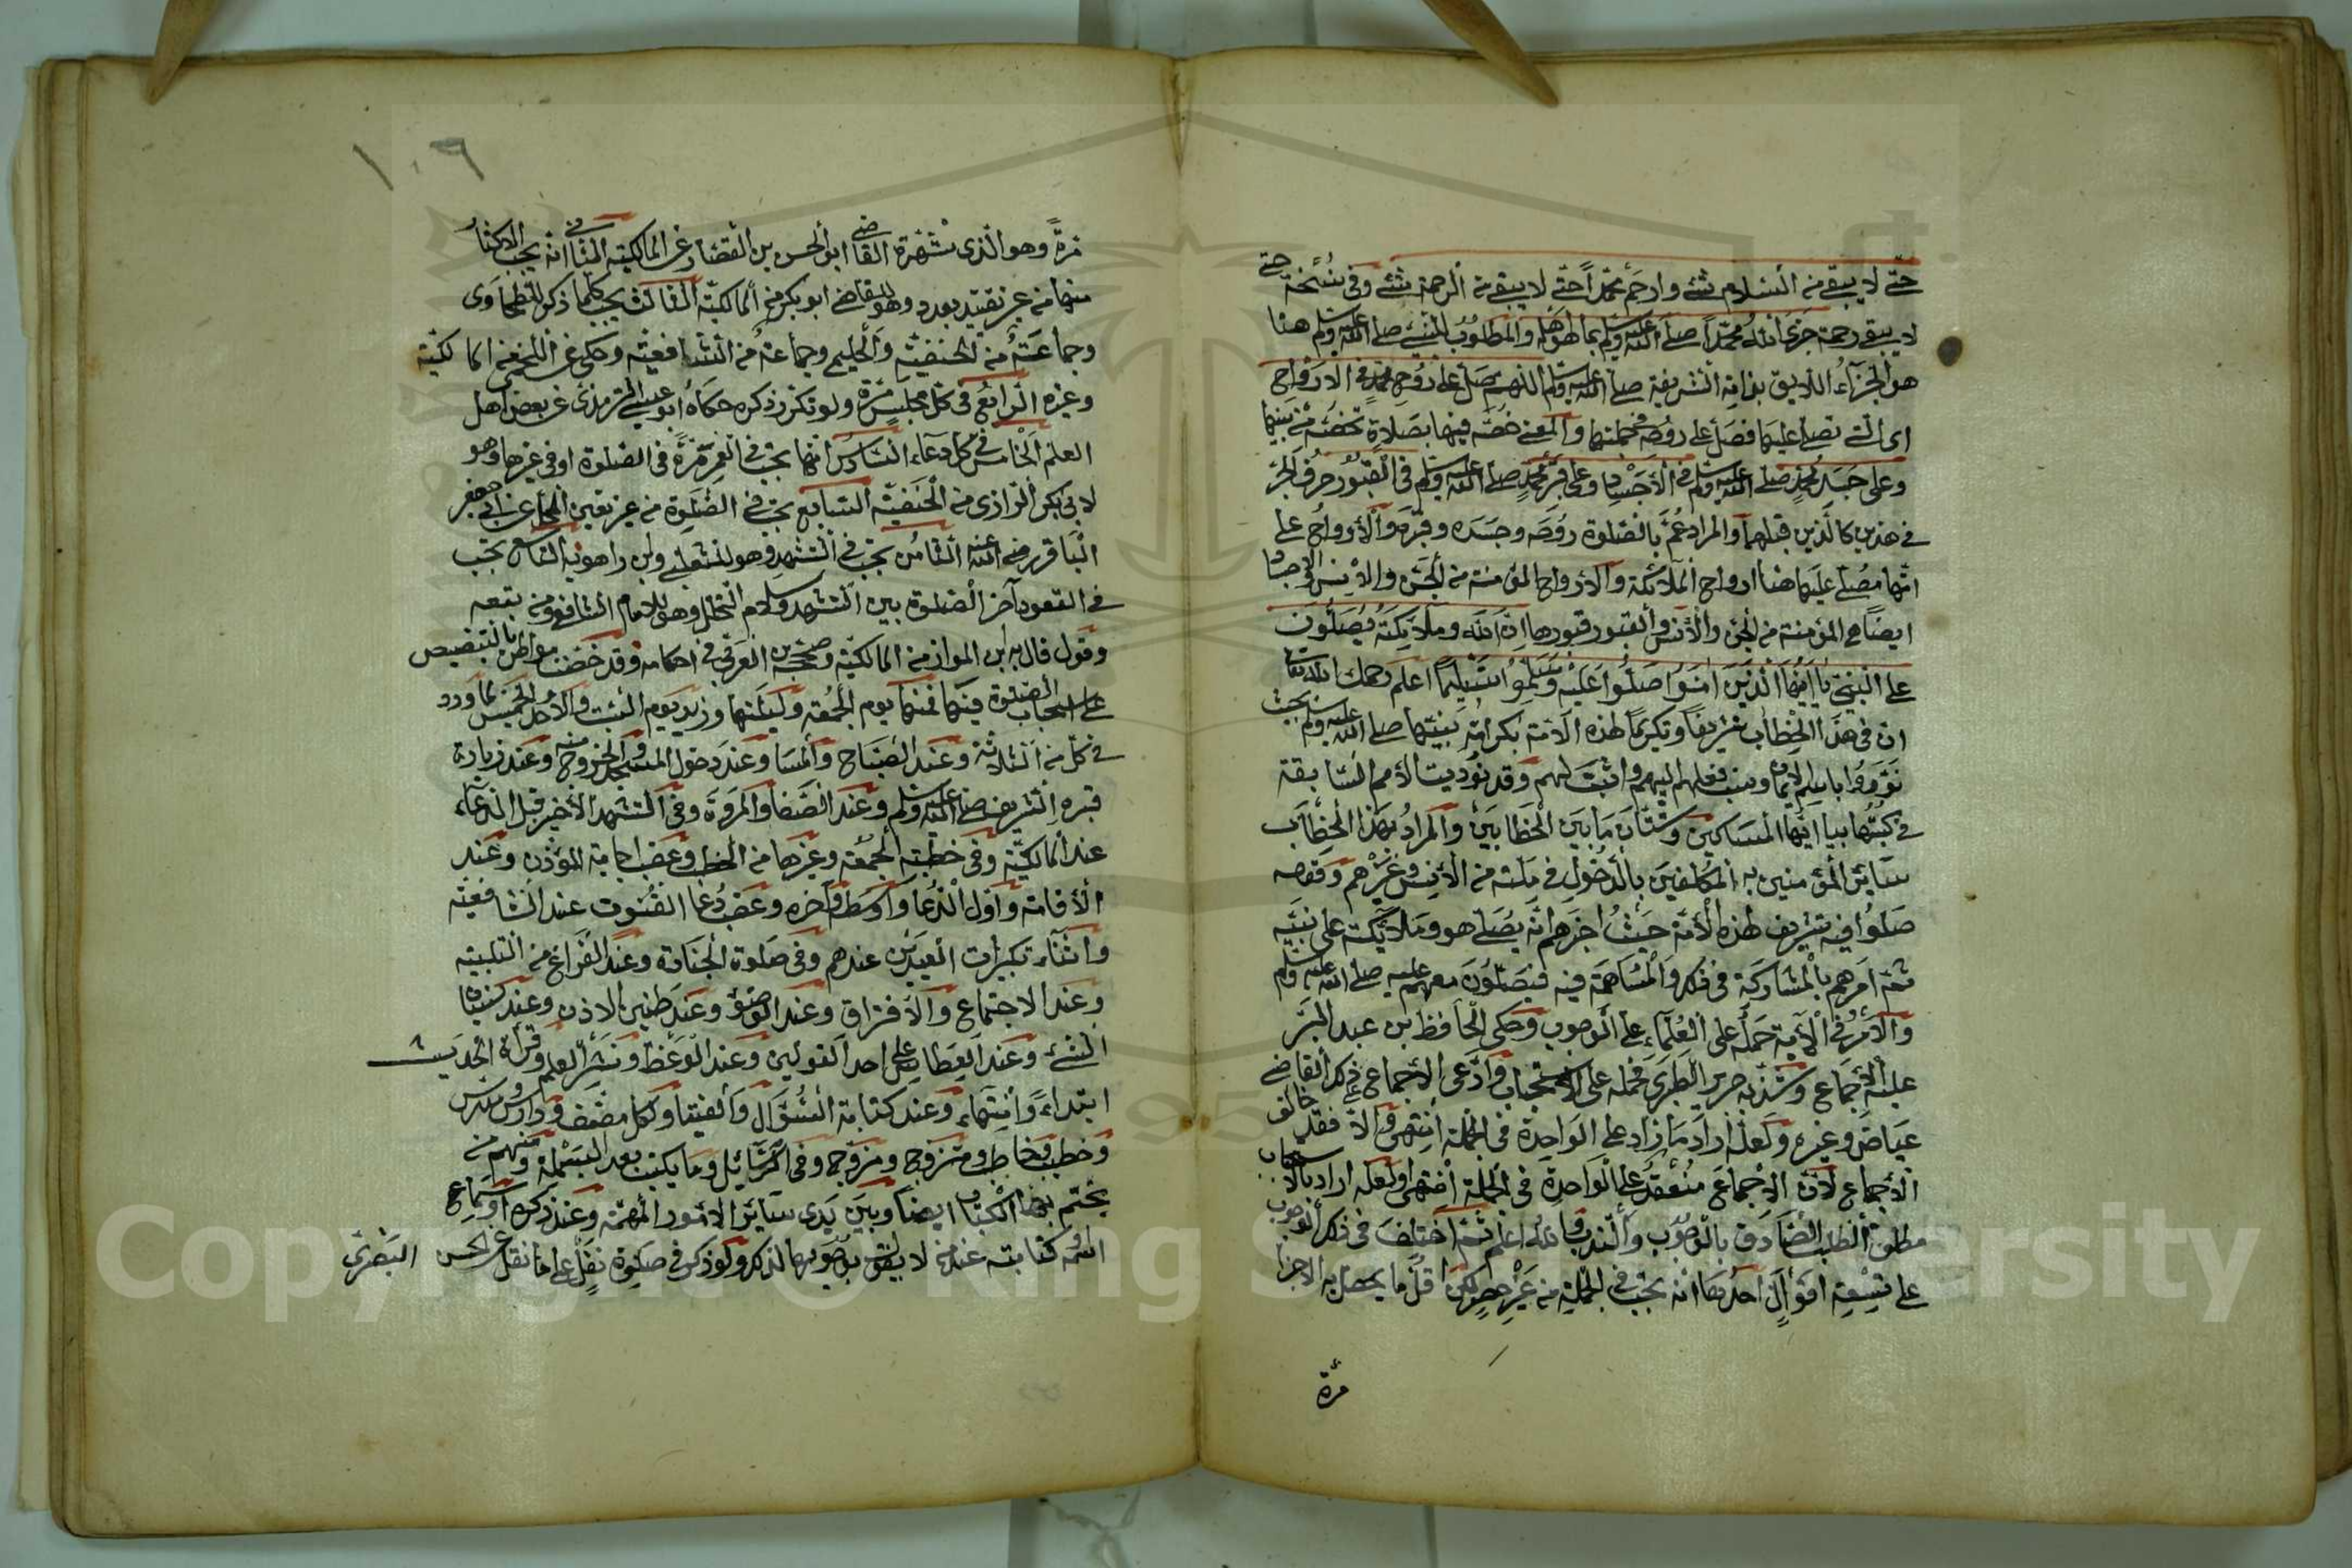 حتى لا يبقى من السلام شئ وارحم محمدا حتى لا يبقى من الرحمة شئ وفى نسخة حتى
لا يبقى رحمة جزى الله محمدا صلى الله عليه وسلم بما هو اهله والمطلوب للنبى صلى الله عليه وسلم هنا
هو الجزاء اللايق بذاته الشريفة صلى الله عليه وسلم اللهم صل على روح محمد فى الارواح
اى التى تصلى عليها فصل على روحه فى جملتها والمعنى خصه فيها بصلاة تخصه من بينها
وعلى جسد محمد صلى الله عليه وسلم فى الأجساد وعلى قبر محمد صلى الله عليه وسلم فى القبور حرف الجر
فى هذين كالذين قبلهما والمراد عم بالصلوة روحه وجسده وقبره والأرواح على
انها مصلى عليها هنا ارواح الملائكة والارواح المؤمنة من الجن والإنس والاجساد
ايضا هى المؤمنة من الجن والأنس والقبور قبورها ان الله وملايكته يصلون
على النبى يا ايها الذين امنوا صلوا عليه وسلموا تسليما اعلم رحمك الله تعالى
ان فى هذا الخطاب تشريفا وتكريما لهذه الامة بكرامة نبيها صلى الله عليه وسلم بحيث
نودوا باسم الإيمان ونسب فعلهم اليهم واثبت لهم وقد نوديت الأمم السابقة
فى كتبها بيا ايها المساكين وشتان ما بين الخطابين والمراد بهذا الخطاب
سائر المؤمنين به المكلفين بالدخول فى ملته من الإنس وغيرهم وقوله
صلوا فيه تشريف لهذه الأمة حيث اخبرهم انه يصلى هو وملائكته على نبيه
ثم امرهم بالمشاركة فى ذلك والمساهمة فيه فيصلون معهم عليه صلى الله عليه وسلم
والأمر فى الآية حمله على العلماء على الوجوب وحكى الحافظ بن عبد البر
عليه الأجماع وشذ بن جرير الطبرى فحمله على الاستحباب وادعى الأجماع على ذلك القاضى
عياض وغيره ولعله اراد ما زاد على الواحدة فى الجملة انتهى والا فقد خالف
الأجماع لان الإجماع منعقد على الواحدة فى الجملة انتهى ولعله اراد بالاستحباب
مطلق الطلب الصادق بالوجوب والندب والله اعلم ثم اختلف فى ذلك الوجوب
على تسعة اقوال احدها انه يجب فى الجملة من غير حصر لكن اقل ما يحصل به الاجزا
مرة
١٠٦
مرة وهو الذى شهره القاضى ابو الحسن بن القصار عن المالكية الثانى انه يجب الاكثار
منها من غير تقييد بعدد وهو للقاضى ابو بكر من المالكية الثالث يجب كلما ذكر للطحاوى
وجماعة من الحنفية والحليمى وجماعة من الشافعية وحكى عن اللخمى من المالكية
وغيره الرابع فى كل مجلس مرة ولو تكرر ذكره حكاه ابو عيسى الترمذى عن بعض اهل
العلم الخامس فى كل دعاء السادس انها تجب فى العمر مرة فى الصلوة او فى غيرها وهو
لابى بكر الرازى من الحنفية السابع تجب فى الصلوة من غير تعيين المحل عن ابى جعفر
الباقر رضى الله عنه الثامن تجب فى التشهد وهو للشعبى وابن راهويه التاسع تجب
فى القعود آخر الصلوة بين التشهد وسلام التحلل وهو للامام الشافعى ومن تبعه
وقول قال به ابن المواز من المالكية وصححه بن العربى فى احكامه وقد خصت مواطن بالتنصيص
على استحباب الصلوة فيها فمنها يوم الجمعة وليلتها وزيد يوم السبت والأحد والخميس لما ورد
فى كل من الثلاثة وعند الصباح والمسا وعند دخول المسجد والخروج منه وعند زيارة
قبره الشريف صلى الله عليه وسلم وعند الصفا والمروة وفى التشهد الأخير قبل الدعاء
عند المالكية وفى خطبة الجمعة وغيرها من الخطب وعقب اجابة المؤذن وعند
الأقامة واول الدعا واوسطه وآخره وعقب دعا القنوت عند الشافعية
واثناء تكبيرات العيدين عندهم وفى صلوة الجنازة وعند الفراغ من التلبية
وعند الاجتماع والأفتراق وعند الوضوء وعند طنين الاذن وعند نسيان
الشئ وعند العطاس على احد القولين وعند الوعظ ونشر العلم وقرأة الحديث
ابتداء وانتهاء وعند كتابة السؤال والفتيا ولكل مصنف ودارس ومدرس
وخطيب وخاطب ومتزوج ومزوج وفى الرسائل وما يكتب بعد البسملة ومنهم من
يختم بها الكتاب ايضا وبين يدى سائر الامور المهمة وعند ذكره او سماع
اسمه او كتابته عند من لا يقول بوجوبها لذلك ولو ذكر فى صلوة نفل على ما نقل عن الحسن البصرى